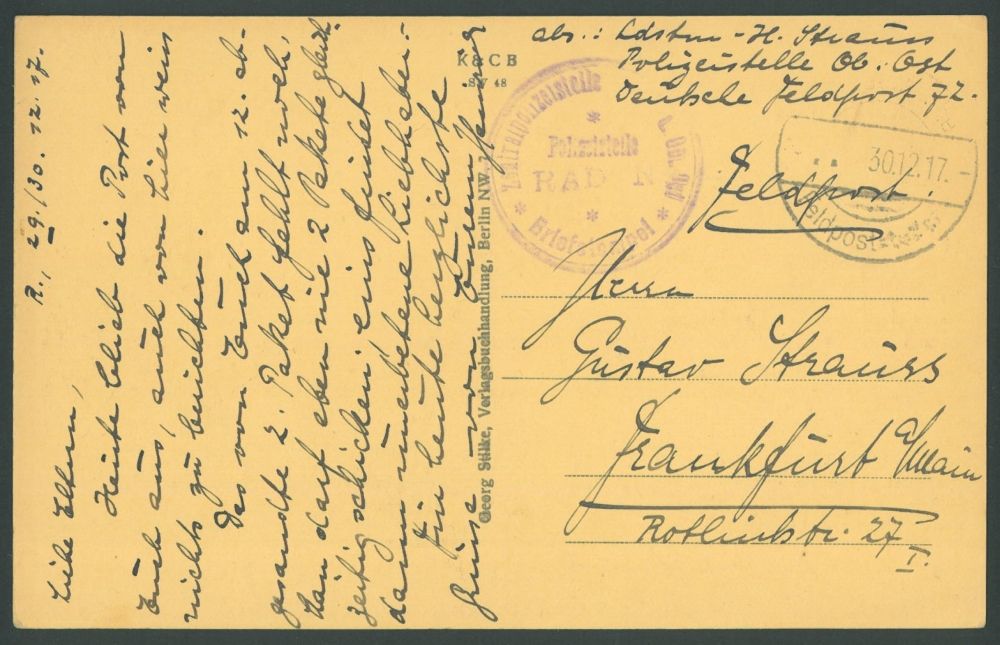 R., 29./30. 12. 17.
Liebe Eltern,
Heute blieb die Post von
Euch aus, auch von hier wein
nichts zu berichten.
Das von Euch am 12. ab-
gesandte 2. Paket fehlt noch,
man darf eben nie 2 Pakete gleich-
zeitig schicken, eins findet
dann unerbetene Liebhaber.
Für heute herzlichste
Grüsse von Eurem Heiner
K & C B
S.W 48
Georg Stilke, Verlagsbuchhandlung, Berlin NW.
abs.: Ldstm. H. Strauss
Polizeistelle Ob. Ost
Deutsche Feldpost 72.
Zentralpolizeistelle Ob. Ost
Polizeistelle
RAD N
Briefstempel
30.12.17.
Feldpost
Feldpost.
Herrn
Gustav Strauss
Frankfurt a/Main
Rotlintstr. 27
I.